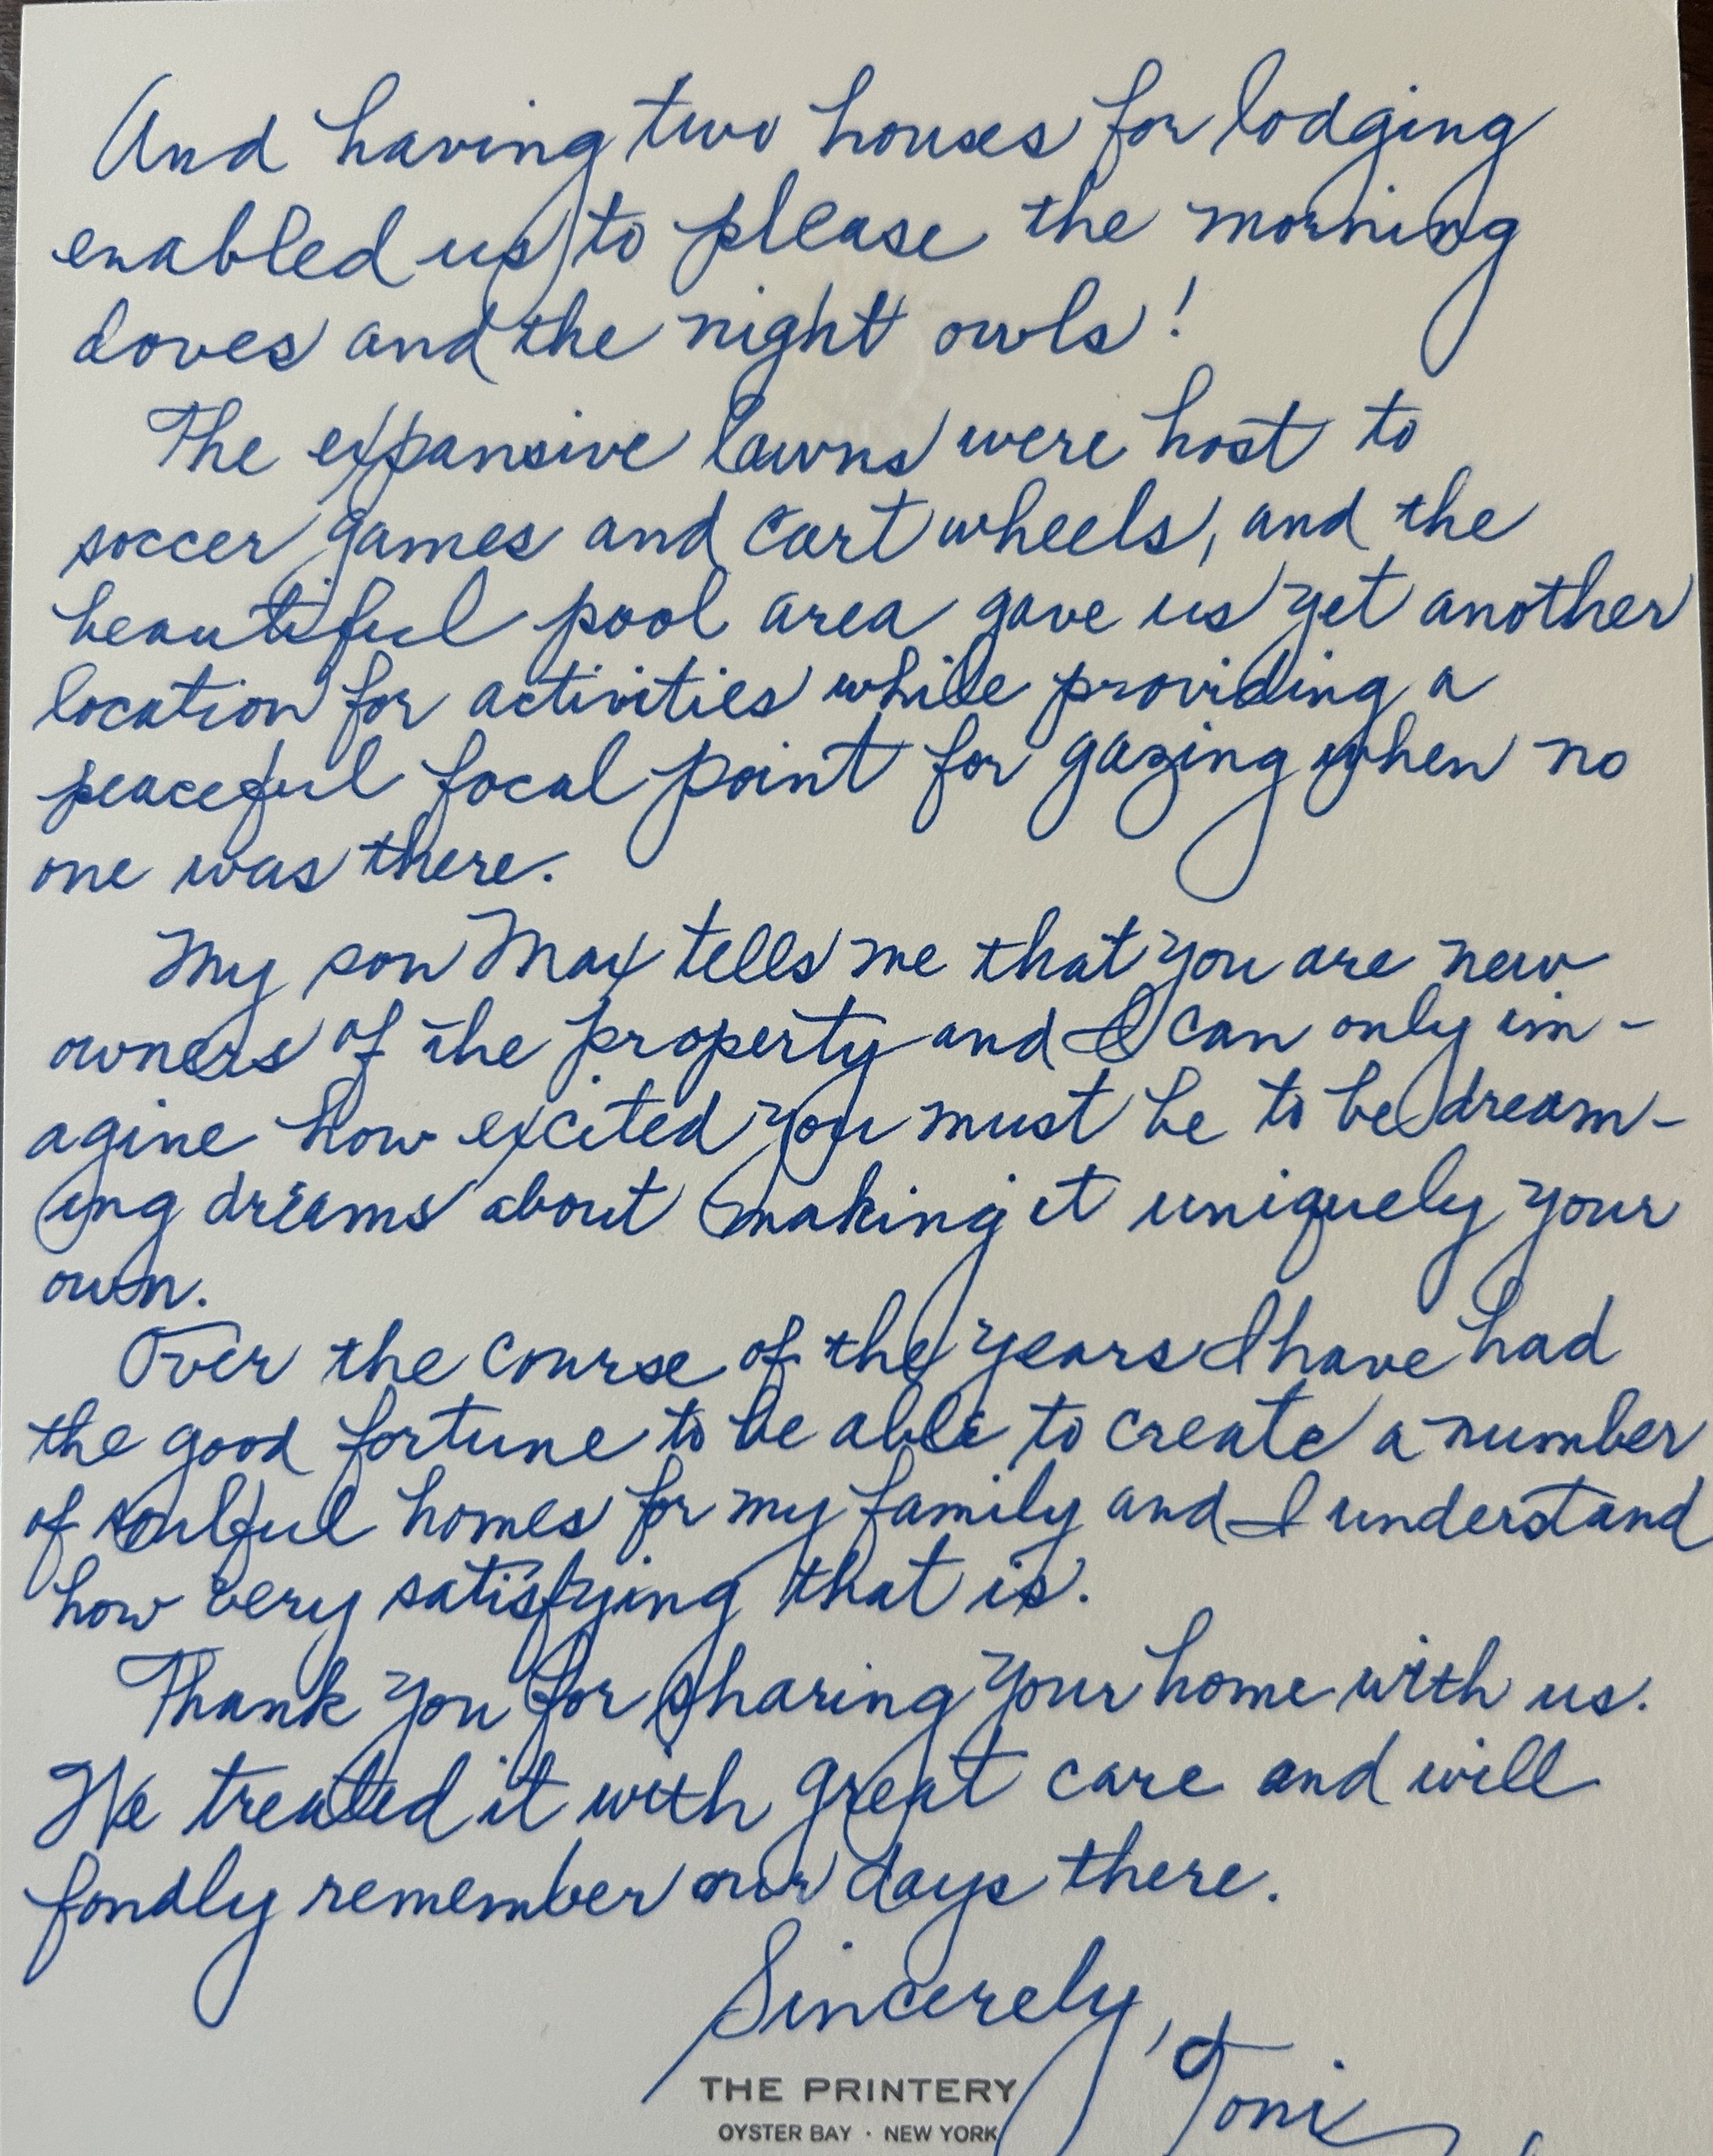 And having two houses for lodging
enabled us to please the morning
doves and the night owls!
The expansive lawns were host to
soccer games and cartwheels, and the
beautiful pool area gave us yet another
location for activities while providing a
peaceful focal point for gazing when no
one was there.
My son Max tells me that you are new
owners of the property and I can only im-
agine how excited you must be to be dream-
ing dreams about making it uniquely your
own.
Over the course of the years I have had
the good fortune to be able to create a number
of soulful homes for my family and I understand
how very satisfying that is.
Thank you for sharing your home with us.
We treated it with great care and will
fondly remember our days there.
Sincerely,
Toni
THE PRINTERY
OYSTER BAY · NEW YORK